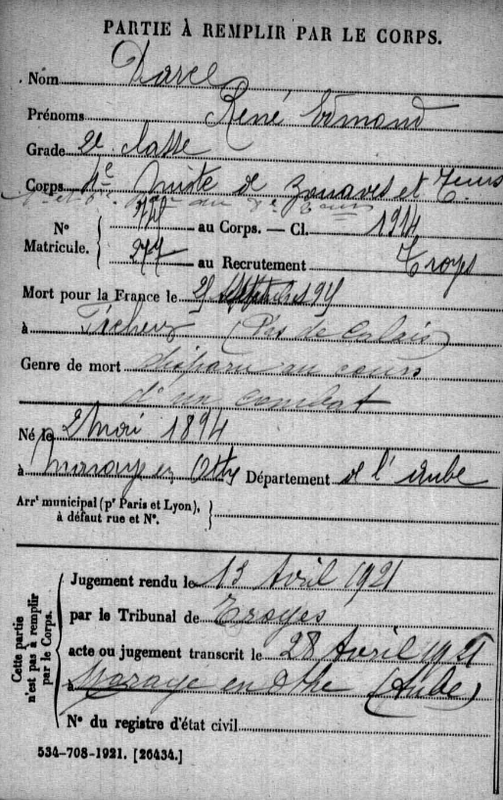 PARTIE À REMPLIR PAR LE CORPS.
Nom Darce
Prénoms René Edmond
Grade 2e classe
Corps 4e Mixte de Zouaves et Tirs
au 8e
Nº au Corps. — Cl. 1914
Matricule. 277 au Recrutement Troyes
Mort pour la France le 25 Septembre 1915
à (Pas de Calais)
Genre de mort disparu au cours
d'un combat
Né le 2 Mai 1894
à Maraye en Othe Département de l'Aube
Arrt municipal (pr Paris et Lyon),
à défaut rue et Nº.
Cette partie
n'est pas à remplir
par le Corps.
Jugement rendu le 13 Avril 1921
par le Tribunal de Troyes
acte ou jugement transcrit le 28 Avril 1921
à Maraye en Othe (Aube)
Nº du registre d'état civil
534-708-1921. [26434.]